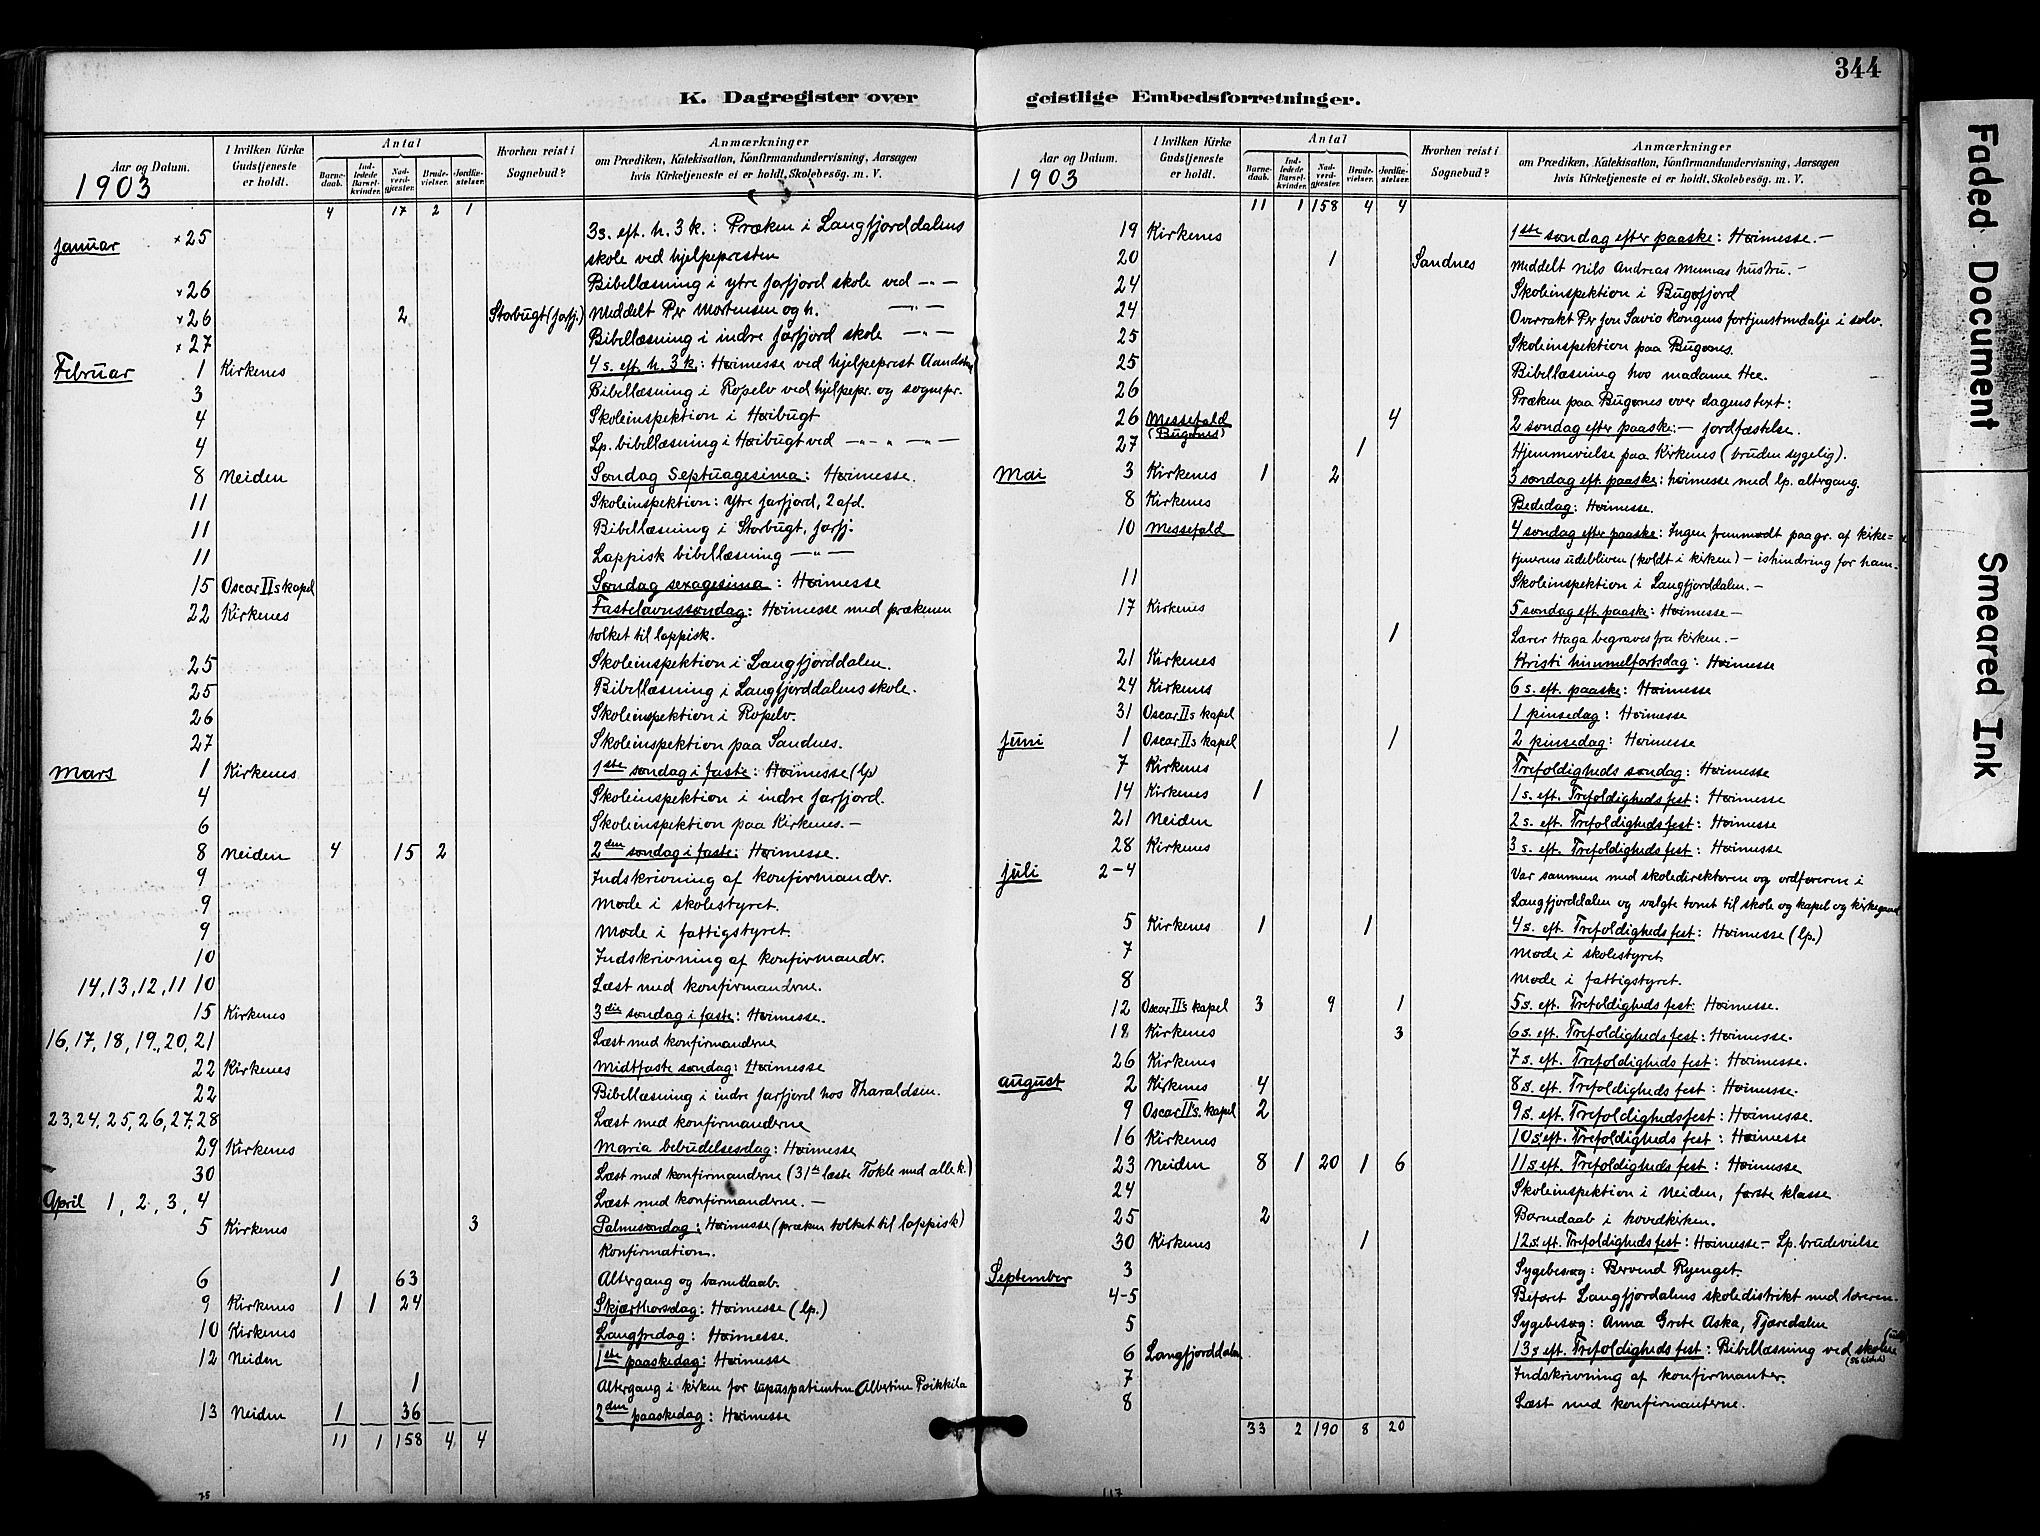 344
K. Dagregister over geistlige Embedsforretninger.
Aar og Datum.
I hvilken Kirke Gudstjeneste er holdt.
Antal
Barnedaab.
Indledede Barselkvinder.
Nadverdgjæster.
Brudevielser.
Jordfæstelser.
Hvorhen reist i Sognebud?
Anmærkninger
om Prædiken, Katekisation, Konfirmandundervisning, Aarsagen
hvis Kirketjeneste ei er holdt, Skolebesög. m. V.
1903
4 17 2 1
Januar × 25 3s. eft. h. 3 k.: Præken i Langfjorddalens
skole ved hjelpepresten
× 26 Bibellæsning i ytre Jarfjord skole ved —"—
× 26 2 Storbugt (Jarfj.) Meddelt Per Mortensen og h. —"—
× 27 Bibellæsning i indre Jarfjord skole —"—
Februar 1 Kirkenes 4 s. eft. h. 3 k.: Høimesse ved hjelpeprest Aandstad
3 Bibellæsning i Ropelv ved hjelpepr. og sognepr.
4 Skoleinspektion i Høibugt
4 Lp. bibellæsning i Høibugt ved —"— " —"—
8 Neiden Søndag Septuagesima: Høimesse.
11 Skoleinspektion: Ytre Jarfjord, 2 afd.
11 Bibellæsning i Storbugt, Jarfj.
11 Lappisk bibellæsning —"—
15 Oscar II's kapel Søndag sexagesima: Høimesse
22 Kirkenes Fastelavnssøndag: Høimesse med prækenen
tolket til lappisk.
25 Skoleinspektion i Langfjorddalen.
25 Bibellæsning i Langfjorddalens skole.
26 Skoleinspektion i Ropelv.
27 Skoleinspektion paa Sandnes.
Mars 1 Kirkenes 1ste søndag i faste: Høimesse (lp)
4 Skoleinspektion i indre Jarfjord.
6 Skoleinspektion paa Kirkenes.—
8 Neiden 4 15 2 2den søndag i faste: Høimesse.
9 Indskrivning af konfirmander.
9 Møde i skolestyret.
9 Møde i fattigstyret.
10 Indskrivning af konfirmander.
14, 13, 12, 11 10 Læst med konfirmanderne.
15 Kirkenes 3die søndag i faste: Høimesse.
16, 17, 18, 19, 20, 21 Læst med konfirmanderne
22 Kirkenes Midtfaste søndag: Høimesse
22 Bibellæsning i indre Jarfjord hos Tharaldsen.
23, 24, 25, 26, 27, 28 Læst med konfirmanderne
29 Kirkenes Maria bebudelsesdag: Høimesse
30 Læst med konfirmanderne (31te læste Tokle med alle k.)
April 1, 2, 3, 4 Læst med konfirmanderne.—
5 Kirkenes 3 Palmesøndag: Høimesse (præken tolket til lappisk)
Konfirmation.
6 1 63 Altergang og barnedaab.
9 Kirkenes 1 1 24 Skjærthorsdag: Høimesse (lp.)
10 Kirkenes Langfredag: Høimesse.
12 Neiden 1ste paaskedag: Høimesse
1 Altergang i kirken for lupuspatienten Albertine Poikkila
13 Neiden 1 36 2den paaskedag: Høimesse
11 1 158 4 4
Aar og Datum.
I hvilken Kirke Gudstjeneste er holdt.
Antal
Barnedaab.
Indledede Barselkvinder.
Nadverdgjæster.
Brudevielser.
Jordfæstelser.
Hvorhen reist i Sognebud?
Anmærkninger
om Prædiken, Katekisation, Konfirmandundervisning, Aarsagen
hvis Kirketjeneste ei er holdt, Skolebesög. m. V.
1903
11 1 158 4 4
19 Kirkenes 1ste søndag efter paaske: Høimesse.—
20 1 Sandnes Meddelt Nils Andreas hustru.—
24 Skoleinspektion i Bugøfjord
24 Overrakt Per Jon Savio kongens fortjenstmedalje i sølv.
25 Skoleinspektion paa Bugønes.
25 Bibellæsning hos madame Hee.
26 Præken paa Bugønes over dagens text:
26 Messefald (Bugønes) 4 2 søndag efter paaske:— jordfæstelse.
27 1 Hjemmevielse paa Kirkenes (bruden sygelig).
Mai 3 Kirkenes 1 2 3 søndag eft. paaske: høimesse med lp. altergang.
8 Kirkenes Bededag: Høimesse.
10 Messefald 4 søndag efter paaske: Ingen fremmødt paa gr. af kirke=
tjenerens udebliven (koldt i kirken) — ishindring for ham.
11 Skoleinspektion i Langfjorddalen.—
17 Kirkenes 5 søndag eft. paaske: Høimesse—
1 Lærer Haga begraves fra kirken.—
21 Kirkenes Kristi himmelfartsdag: Høimesse
24 Kirkenes 6 s. eft. paaske: Høimesse
31 Oscar II's kapel 1 pinsedag: Høimesse
Juni 1 Oscar II's kapel 1 2 pinsedag: Høimesse
7 Kirkenes Trefoldigheds søndag: Høimesse
14 Kirkenes 1 1 s. eft. Trefoldigheds fest: Høimesse
21 Neiden 2 s. eft. Trefoldigheds fest: Høimesse
28 Kirkenes 3 s. eft. Trefoldigheds fest: Høimesse
Juli 2-4 Var sammen med skoledirektøren og ordføreren i
Langfjorddalen og valgte tomt til skole og kapel og kirkegaard
5 Kirkenes 1 1 4 s. eft. Trefoldigheds fest: Høimesse (lp.)
7 Møde i skolestyret
8 Møde i fattigstyret.
12 Oscar II's kapel 3 9 1 5 s. eft. Trefoldigheds fest: Høimesse.
18 Kirkenes 3 6 s. eft. Trefoldigheds fest: Høimesse.
26 Kirkenes 7 s. eft. Trefoldigheds fest: Høimesse.
August 2 Kirkenes 4 8 s. eft. Trefoldigheds fest: Høimesse.
9 Oscar II's. kapel 2 9 s. eft. Trefoldighedsfest: Høimesse.
16 Kirkenes 10 s. eft. Trefoldigheds fest: Høimesse
23 Neiden 8 1 20 1 6 11 s. eft. Trefoldigheds fest: Høimesse
24 Skoleinspektion i Neiden, første klasse
25 2 Barnedaab i hovedkirken.
30 Kirkenes 1 12 s. eft. Trefoldigheds fest: Høimesse.— Lp. brudevielse
September 3 Sygebesøg: Bervend Ryenget.
4-5 Befaret Langfjordalens skoledistrikt med læreren.
5 Sygebesøg: Anna Grete Aska, Tjæredalen
6 Langfjorddalen 13 s. eft. Trefoldigheds fest: Bibellæsning ved skolen
7 Indskrivning af konfirmanter.
8 Læst med konfirmanterne.
33 2 190 8 20
Faded Document
Smeared Ink